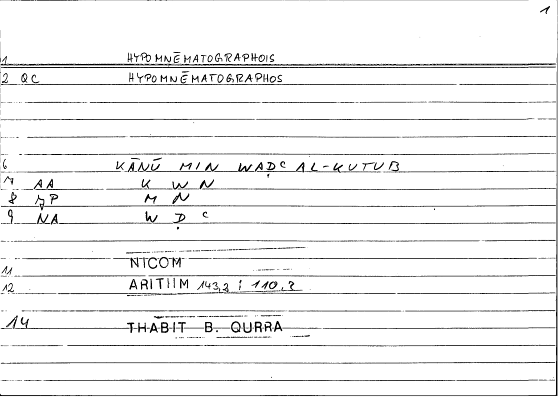 1
1 HYPOMNĒMATOGRAPHOIS
2 QC HYPOMNĒMATOGRAPHOS
6 KĀNŪ MIN WAḌC AL-KUTUB
7 AA K W N
8 AP M N
9 NA W Ḍ C
11 NICOM
12 ARITHM 143,2 ; 110,2
14 THABIT B. QURRA